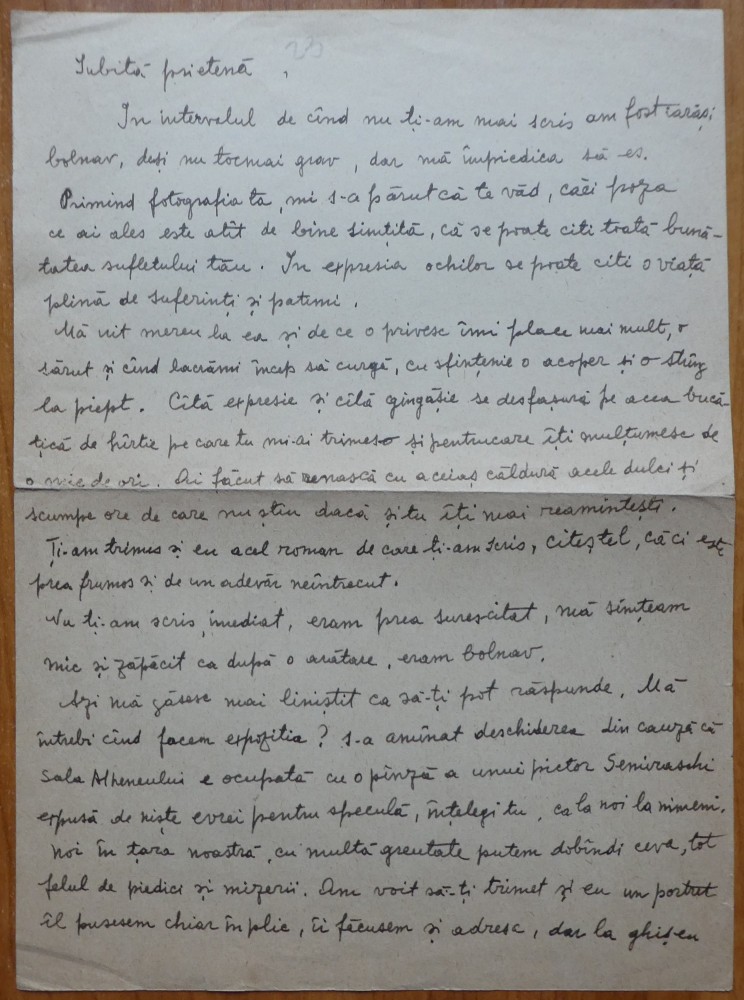 23
Iubită prietenă,
In intervalul de cînd nu ți-am mai scris am fost iarăși
bolnav, deși nu tocmai grav, dar mă împiedica să es.
Primind fotografia ta, mi s-a părut că te văd, căci poza
ce ai ales este atît de bine simțită, că se poate citi toată bună-
tatea sufletului tău. In expresia ochilor se poate citi o viață
plină de suferinți și patemi.
Mă uit mereu la ea și de ce o privesc îmi place mai mult, o
sărut și cînd lacrămi încep să curgă, cu sfințenie o acoper și o strîng
la piept. Cîtă expresie și cîtă gingășie se desfășură pe acea bucă-
țică de hîrtie pe care tu mi-ai trimes-o și pentru care îți mulțumesc de
o mie de ori. Ai făcut să renască cu aceiaș căldură acele dulci și
scumpe ore de care nu știu dacă și tu îți mai reamintești.
Ți-am trimes și eu acel roman de care ți-am scris, citeștel, căci este
prea frumos și de un adevăr neîntrecut.
Nu ți-am scris imediat, eram prea surescitat, mă simțeam
mic și zăpăcit ca după o arătare, eram bolnav.
Azi mă găsesc mai liniștit ca să-ți pot răspunde. Mă
întrebi cînd facem expoziția? s-a amînat deschiderea din cauză că
Sala Atheneului e ocupată cu o pînză a unui pictor Semiraschi
expusă de niște evrei pentru speculă, înțelegi tu, ca la noi la nimeni.
Noi în țara noastră, cu multă greutate putem dobîndi ceva, tot
felul de piedici și mizerii. Am voit să-ți trimet și eu un portret
îl pusesem chiar în plic, îi făcusem și adresa, dar la ghișeu